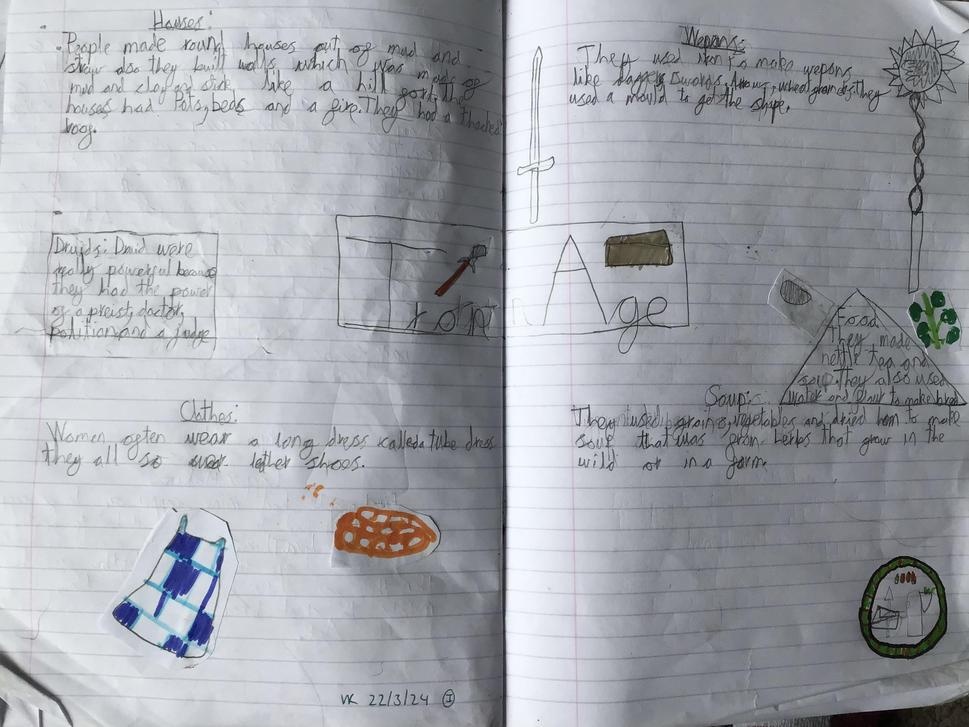 Houses:
People made round houses out of mud and
straw also they built walls which was made of
mud and clay and stick like a hill fort, the
houses had Pots, beds and a fire. They had a thached
roof.
Druids: Druid were
really powerful because
they had the power
of a preist, doctor,
politition and a judge
Iron Age
Clothes:
Women often wear a long dress called a tube dress
they all so wear lether shoes.
VK 22/3/24 I
Wepons:
They used iron to make wepons
like daggers, swords, Arrows, They
used a mould to get the shape.
Food
They made
nettle tea and
soup. They also used
water and flour to make bred
Soup:
They used grains, vegetables and dried ham to make
soup that was from herbs that grow in the
wild or in a farm.